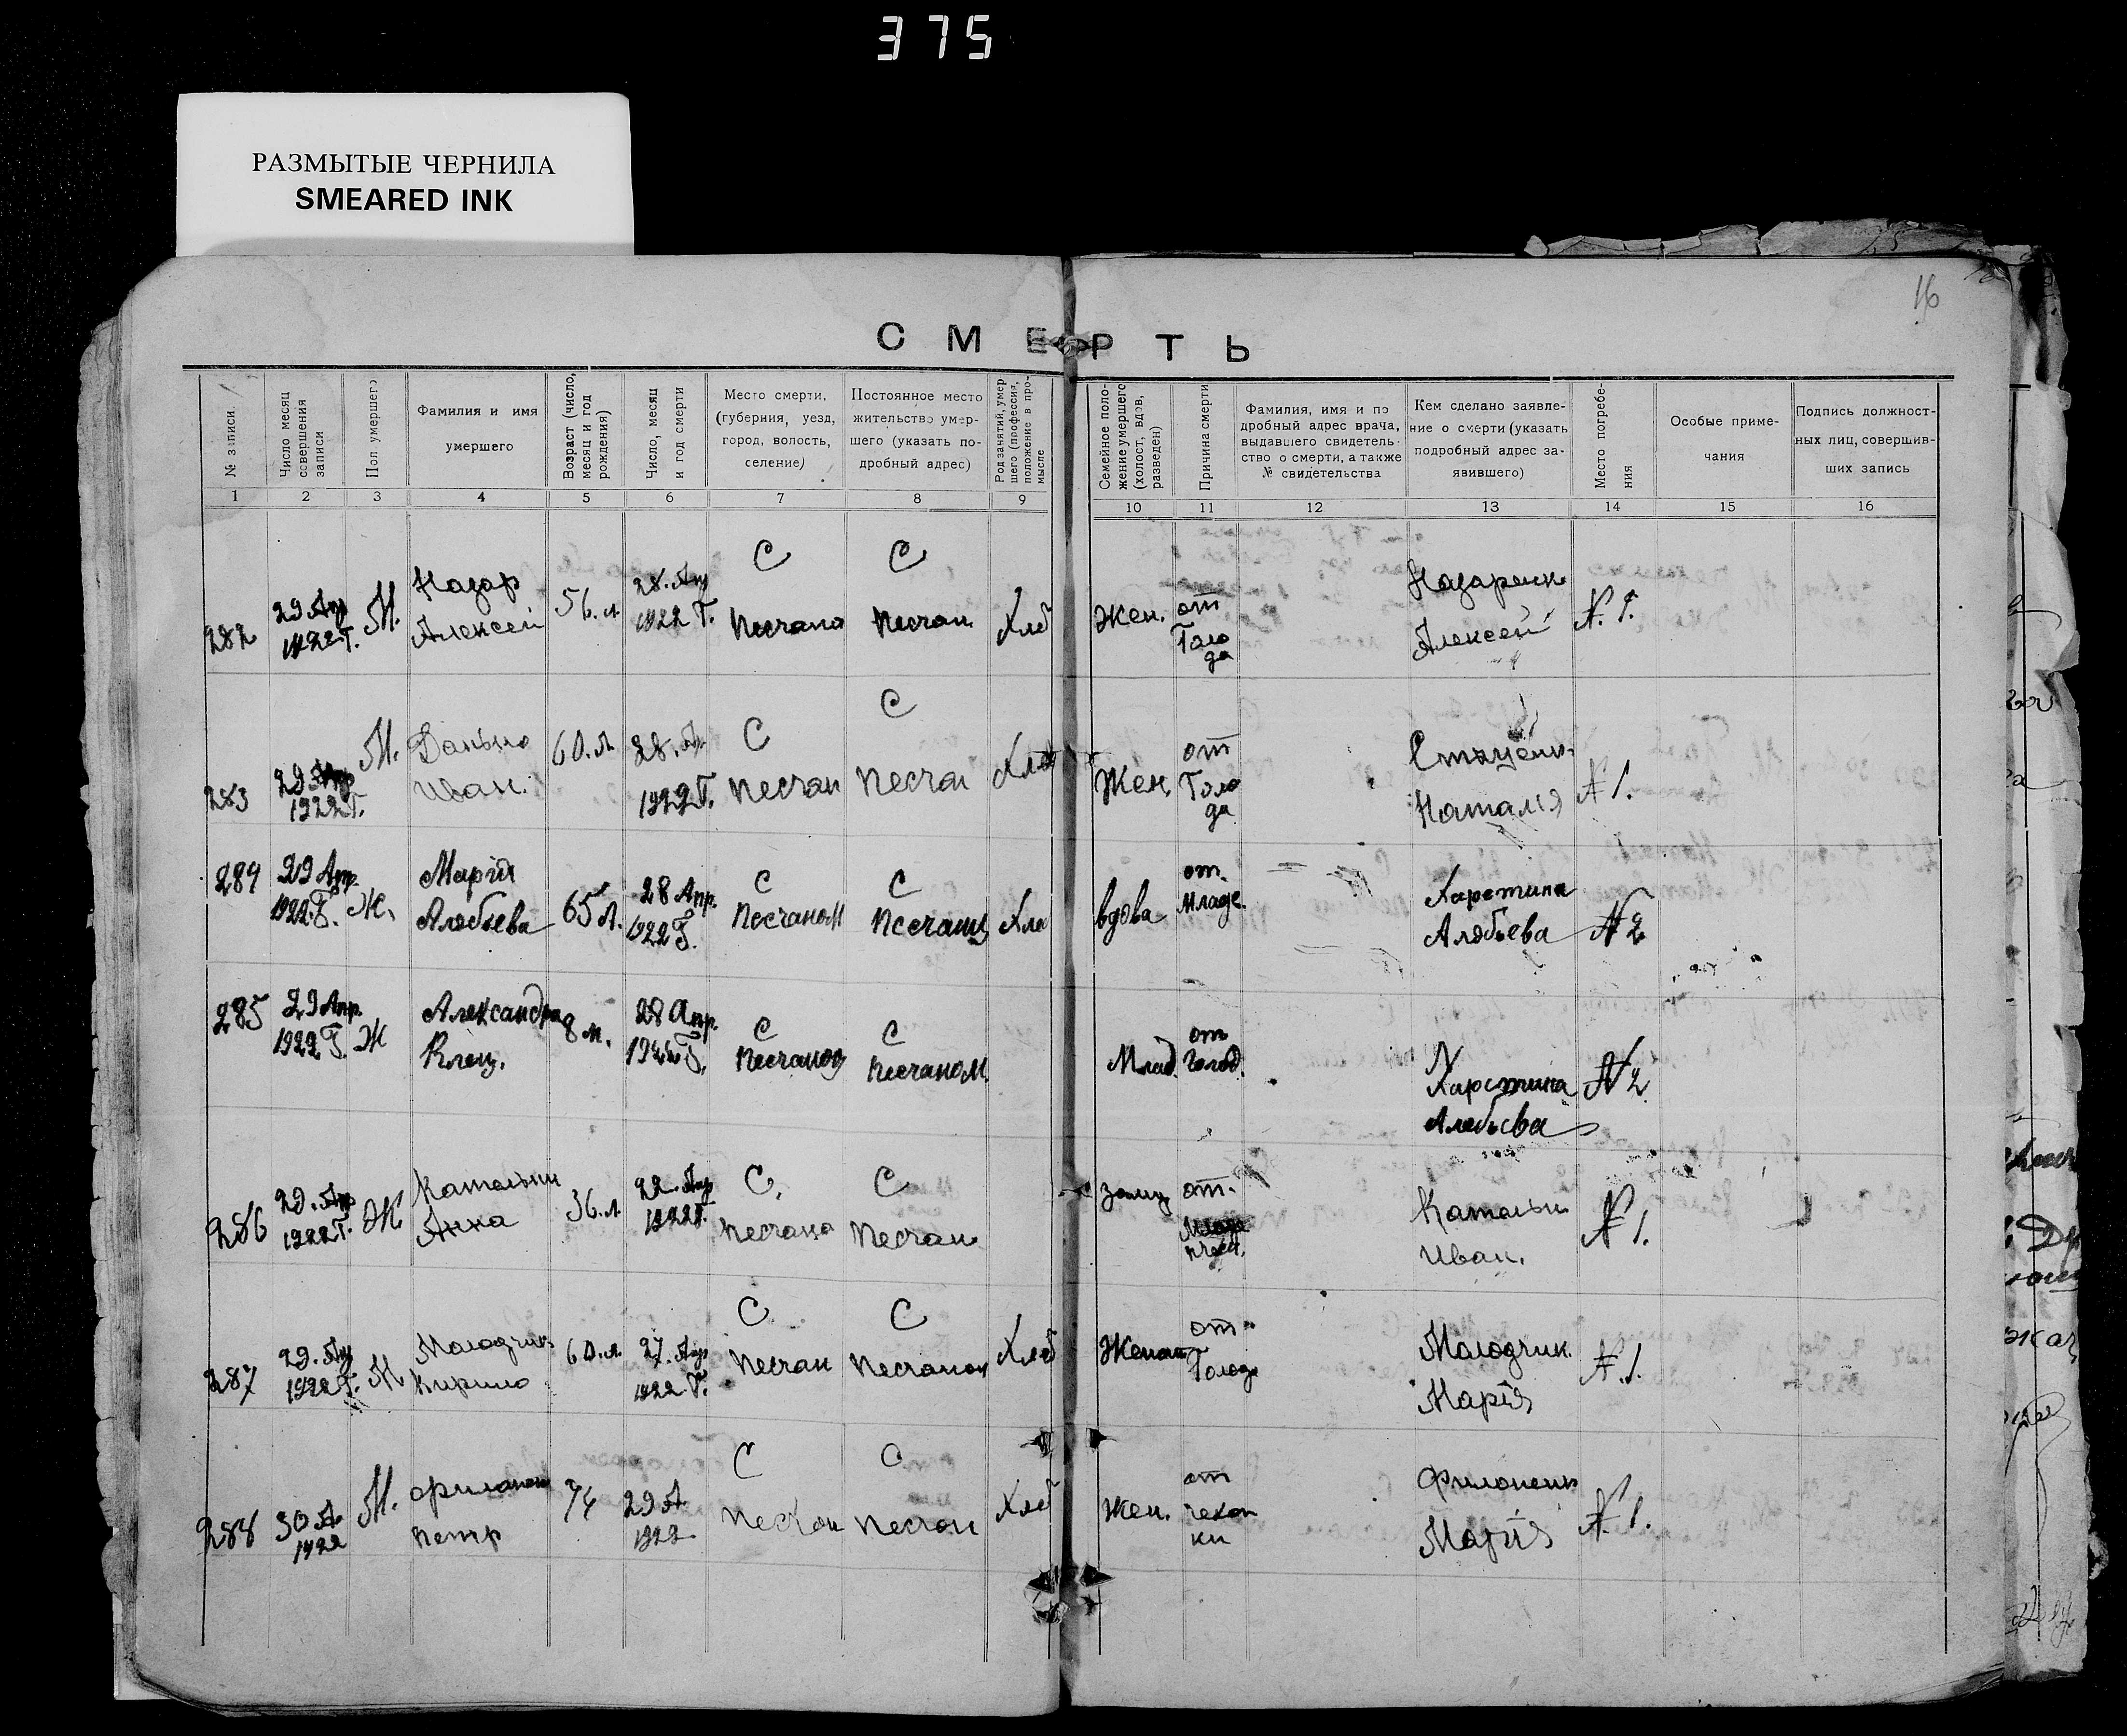 375
РАЗМЫТЫЕ ЧЕРНИЛА
SMEARED INK
16
СМЕРТЬ
№ записи.
Число месяц совершения записи
Пол умершего
Фамилия и имя умершего
Возраст (число, месяц и год рождения)
Число, месяц и год смерти
Место смерти, (губерния, уезд, город, волость, селение)
Постоянное место жительство умершего (указать подробный адрес)
Род занятий, умершего (профессия, положение в промысле
Семейное положение умершего (холост, вдов, разведен)
Причина смерти
Фамилия, имя и подробный адрес врача, выдавшего свидетельство о смерти, а также № свидетельства
Кем сделано заявление о смерти (указать подробный адрес заявившего)
Место погребения
Особые примечания
Подпись должностных лиц, совершивших запись
1 2 3 4 5 6 7 8 9 10 11 12 13 14 15 16
282 29 Апр 1922 Г. М. Назар Алексей 56. л 28. Апр 1922 Г. С Песчано С Песчан Хлеб Жен. от Голода Назаренк Алексей N. 1.
283 29 Апр 1922 Г. М. Данько Иван. 60. л 28. Ап 1922 Г. С Песчан С Песчан Хлеб Жен. от Голода Стаценк Наталія N 1.
284 29 Апр. 1922 Г. Ж. Марія Алябьева 65 л. 28 Апр. 1922 Г. С Песчаном С Хле вдова от. Харетина Алябьева N 2
285 29 Апр. 1922 Г. Ж Александра Клец. 8 м. 28 Апр. С С Песчаном. Млад. от голод. Харетина Алябьева N 2
286 29. Апр 1922 Г. Ж Анна 36. л 22. Апр 1922 Г. С. Песчано С Песчан замуж от. Иван. N 1.
287 29. Апр 1922 Г. М Молодчик Кирило 60. л. 27. Апр 1922 Г. С Песчан С Песчаном Хлеб Женат от Голода Молодчик Марія N. 1.
288 30 Ап 1922 М. Филонен Петр 74 29 А 1922 С Песчан С Песчан Хлеб Жен. от чехотки Филоненк Марія N. 1.